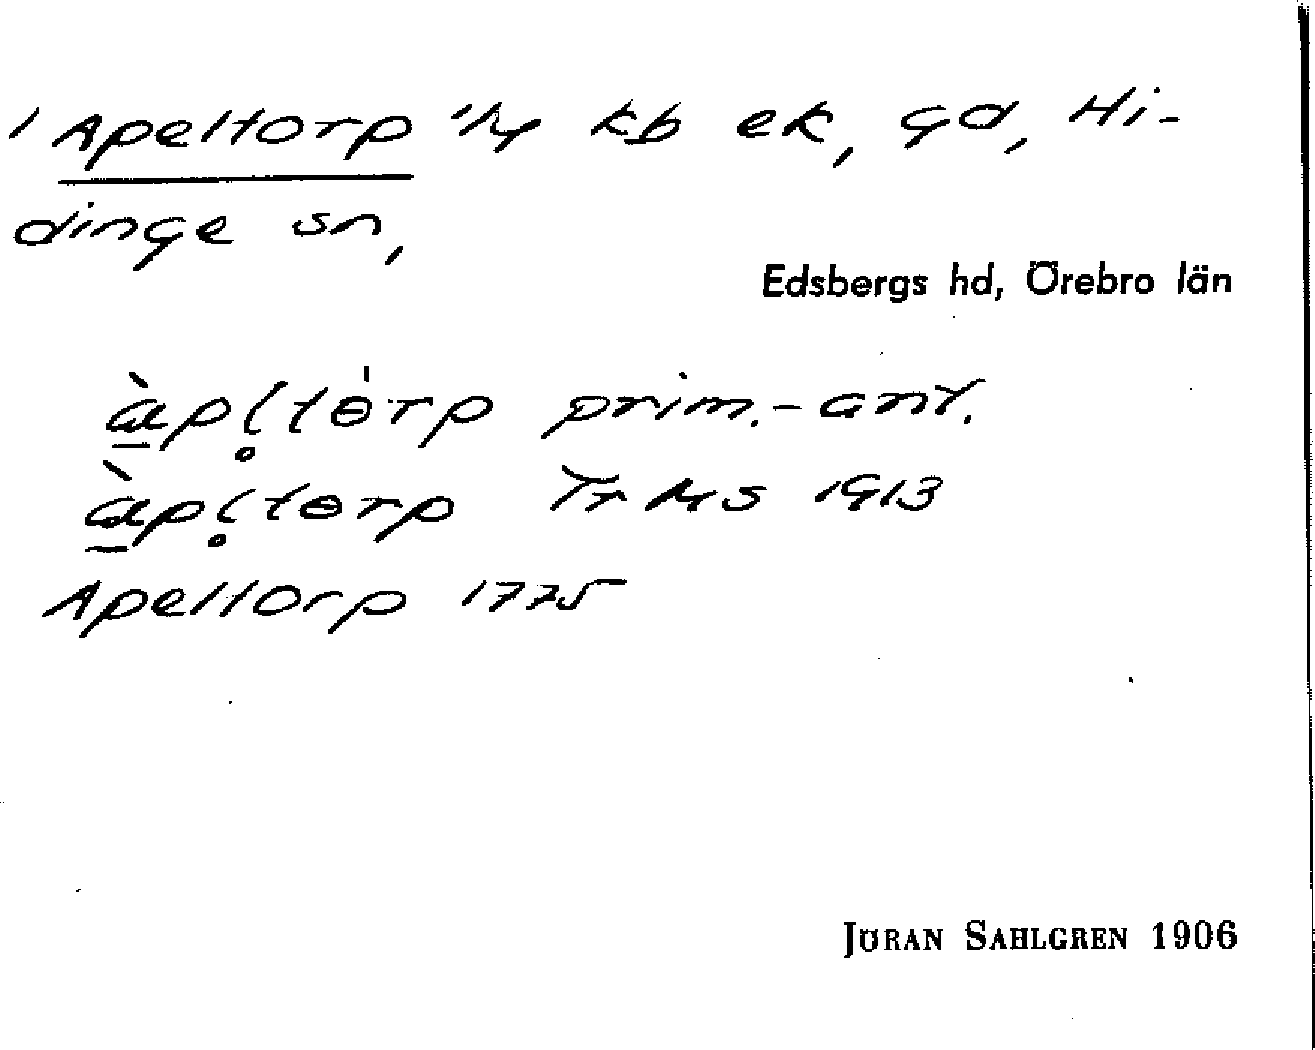 1 Apeltorp 1/4 kb ek, gd, Hi-
dinge sn,
Edsbergs hd, Örebro län
àpl̥tɵ̇rp prim.-ant.
àpl̥tɵrp Tr Ms 1913
Apeltorp 1775
JÖRAN SAHLGREN 1906